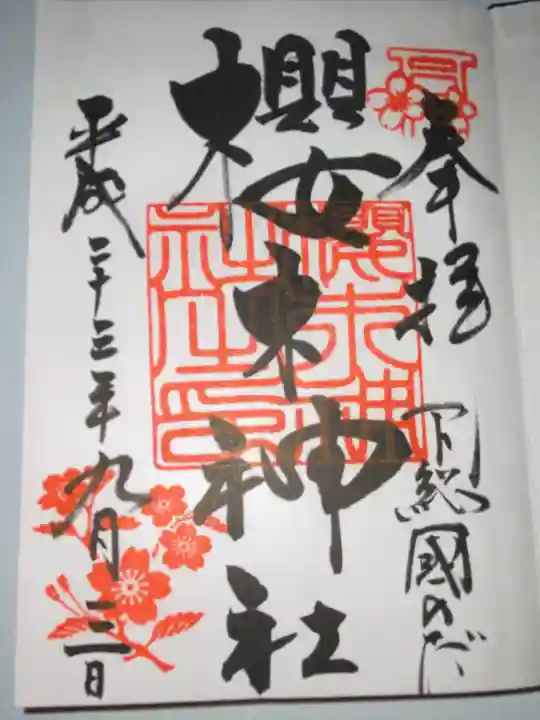 奉拝
下総國のだ
櫻木神社
櫻木神社之印
平成二十三年九月三日